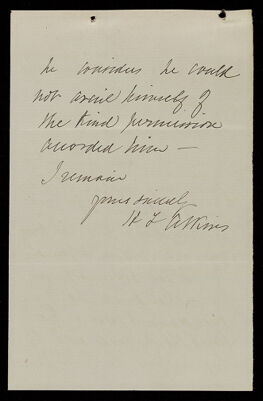 he considers he could
not avail himself of
the kind permission
accorded him —
I remain
yours sincerely
H L Atkins